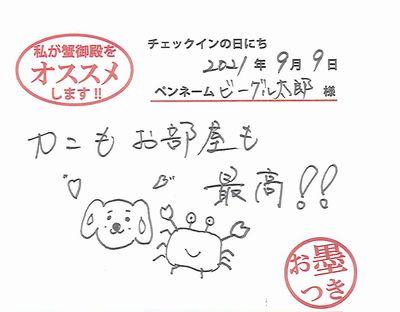 私が蟹御殿を
オススメ
します!!
チェックインの日にち
2021年9月9日
ペンネーム ビーグル太郎 様
カニもお部屋も
最高!!
お墨
つき